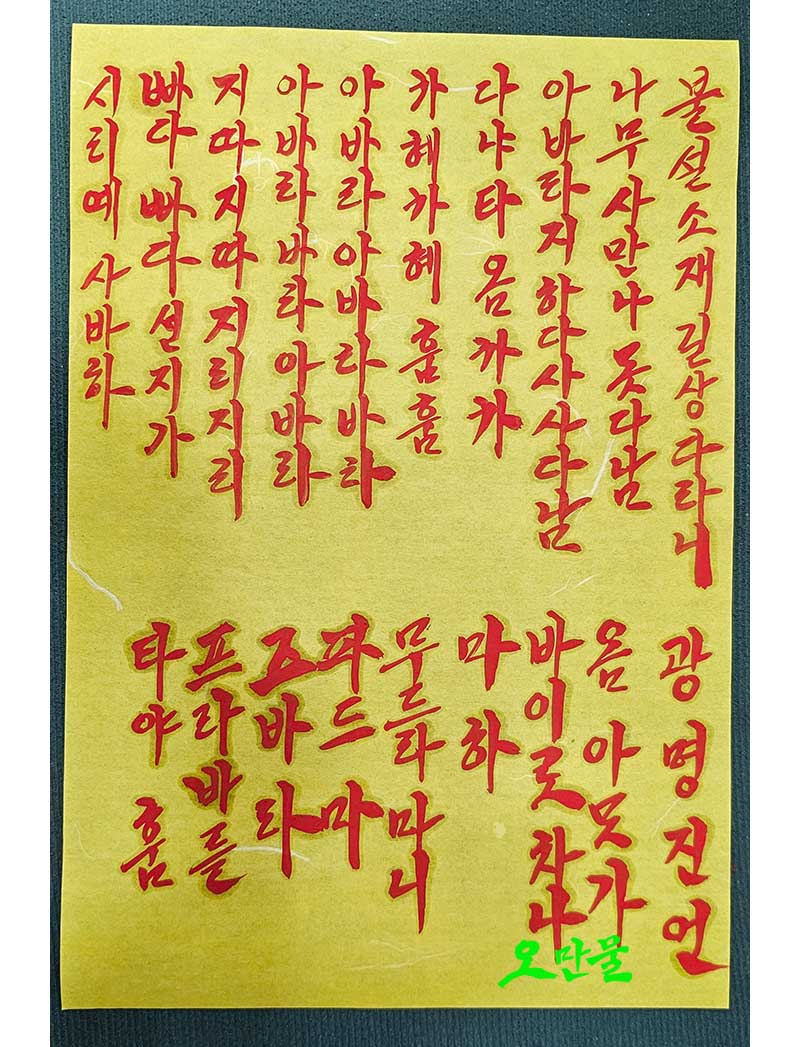 불설소재길상다라니
나무 사만나 못다남
아바라지 하다사 사다남
다냐타 옴 카카
카혜카혜 훔훔
아바라 아바라 바라
아바라 바라 아바라
지따 지따 지리지리
빠다 빠다 션지가
시리예 사바하
광명진언
옴 아모가
바이로차나
마하
무드라 마니
파드마
즈바라
프라바를
타야 훔
오만물